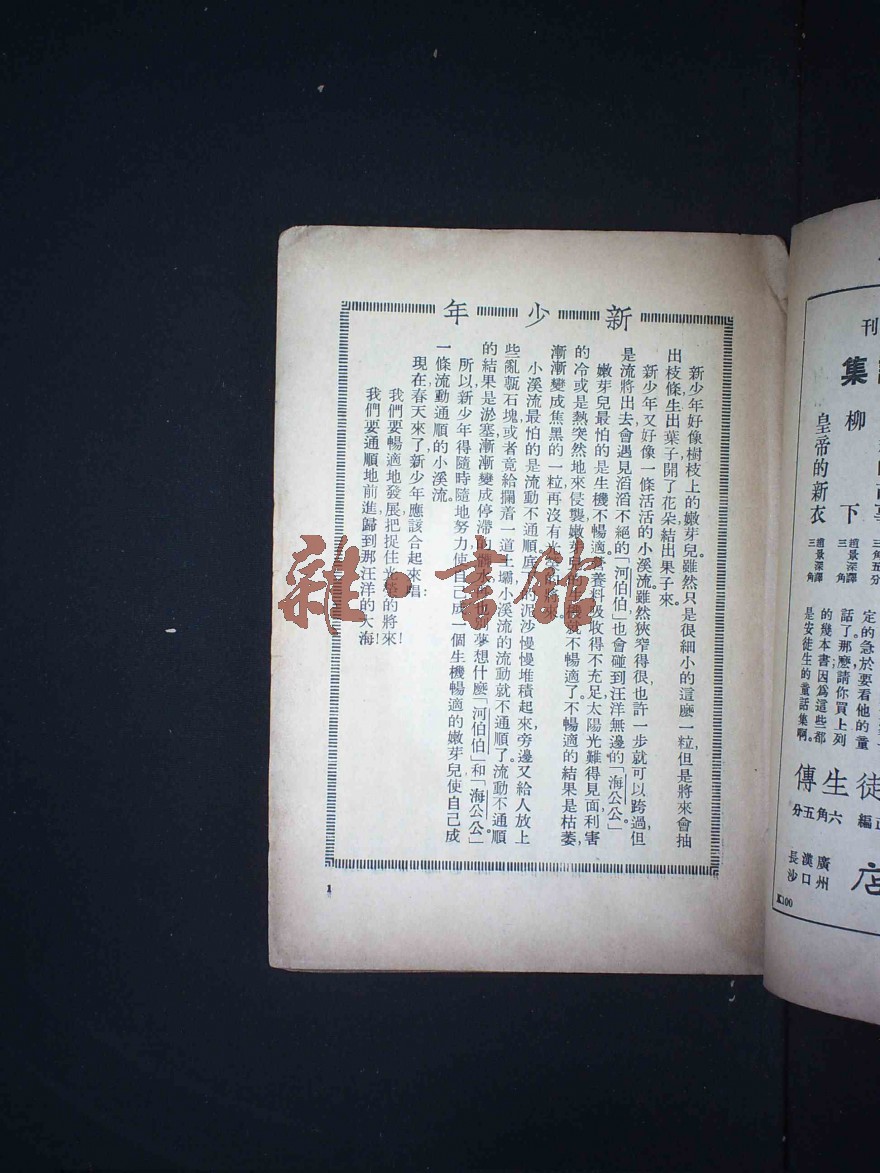 新少年
新少年好像樹枝上的嫩芽兒。雖然只是很細小的這麼一粒，但是將來會抽
出枝條，生出葉子，開了花朵，結出果子來。
新少年又好像一條活活的小溪流。雖然狹窄得很，也許一步就可以跨過，但
是流將出去，會遇見滔滔不絕的「河伯伯」，也會碰到汪洋無邊的「海公公」。
嫩芽兒最怕的是生機不暢適。養料吸收得不充足，太陽光難得見面，利害
的冷或是熱突然地來侵襲，嫩芽兒的生機就不暢適了。不暢適的結果是枯萎，
漸漸變成焦黑的一粒，再沒有光榮的將來。
小溪流最怕的是流動不通順。底下泥沙慢慢堆積起來，旁邊又給人放上
些亂甎石塊，或者竟給攔着一道土壩，小溪流的流動就不通順了。流動不通順
的結果是淤塞，漸漸變成停滯的髒水，再也別夢想什麼「河伯伯」和「海公公」。
所以新少年得隨時隨地努力，使自己成一個生機暢適的嫩芽兒，使自己成
一條流動通順的小溪流。
現在春天來了，新少年應該合起來唱：
我們要暢適地發展，把捉住光榮的將來！
我們要通順地前進，歸到那汪洋的大海！
1
雜·書館
刊
集
柳 下
皇帝的新衣
趙景深譯 三角
趙景深譯 三角
定的急於要看他的童
話了，那麼，請你買上列
的幾本書，因爲這些都
是安徒生的童話集啊。
徒生傳
六角五分
廣州
漢口
長沙
K100